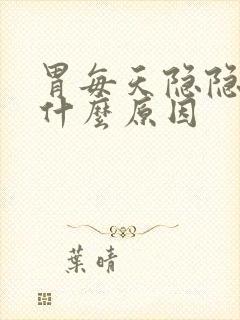 胃每天隐隐
什麼原因
葉晴